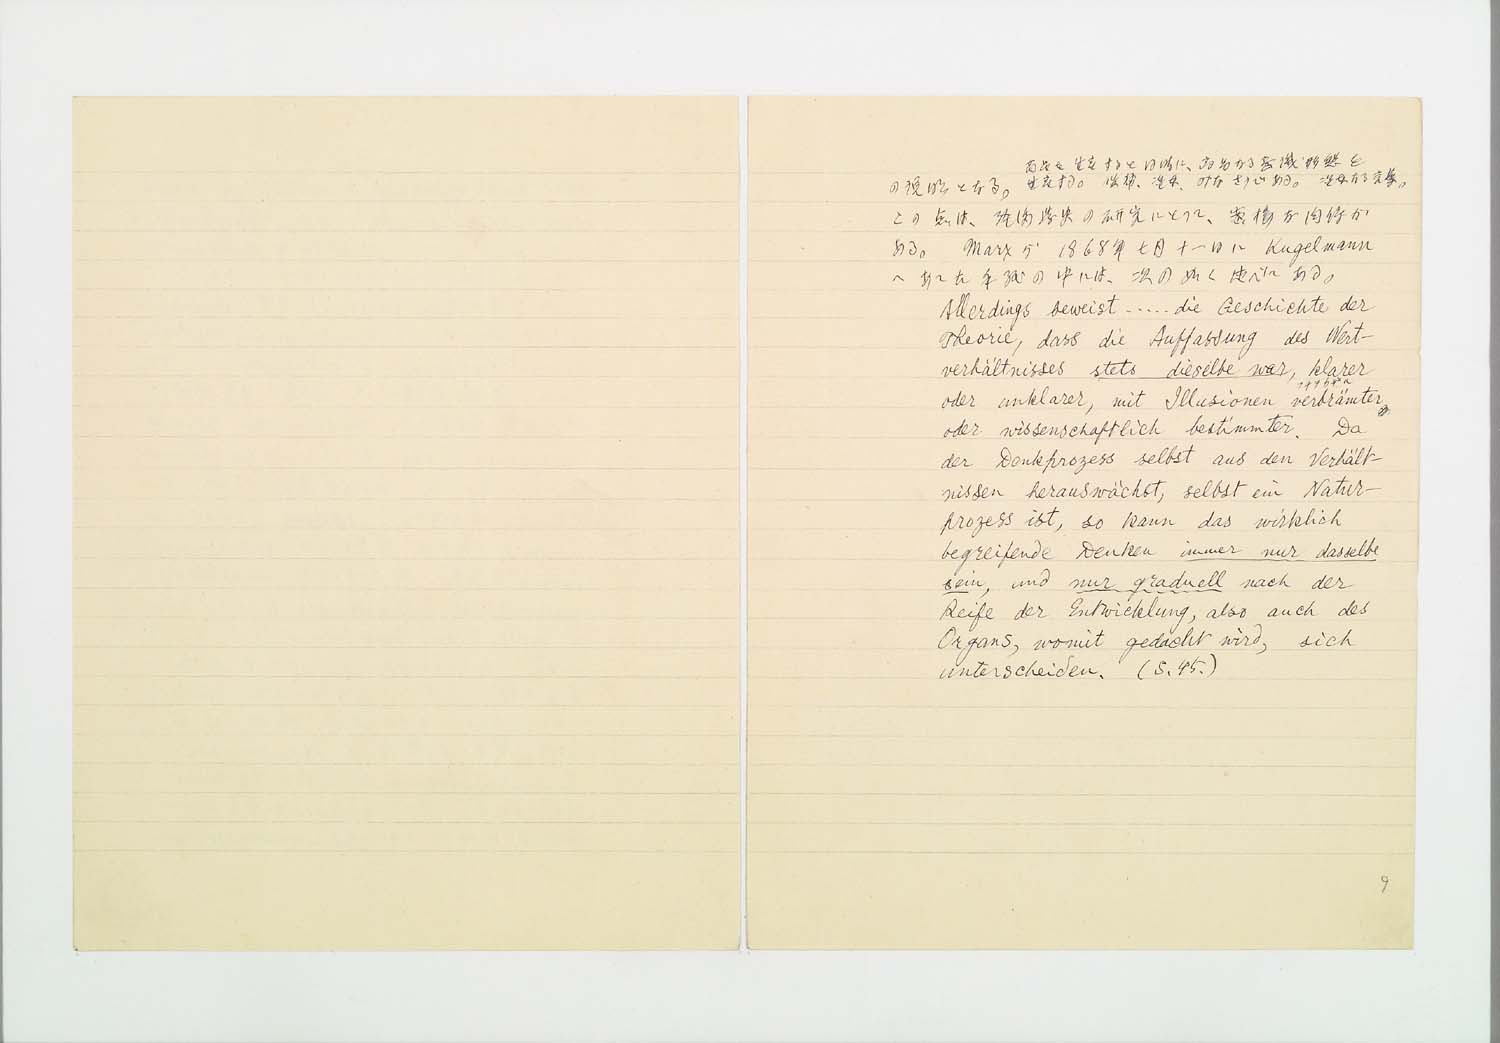 商品を生産すると同時に、対応する意識形態を
の説明となる。生産する。
この点は、経済学史の研究にとつて、意義が
ある。 Marx が 1868年七月十一日に Kugelmann
へあてた手紙の中には、次の如く述べてある。
Allerdings beweist ..... die Geschichte der
Theorie, dass die Auffassung des Wert-
verhältnisses stets dieselbe war, klarer
oder unklarer, mit Illusionen verbrämter
oder wissenschaftlich bestimmter. Da
der Denkprozess selbst aus den Verhält-
nissen herauswächst, selbst ein Natur-
prozess ist, so kann das wirklich
begreifende Denken immer nur dasselbe
sein, und nur graduell nach der
Reife der Entwicklung, also auch des
Organs, womit gedacht wird, sich
unterscheiden. (S.45.)
9